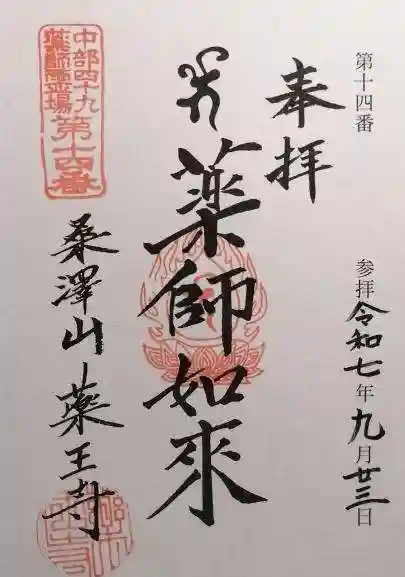 第十四番
参拝令和七年九月廿三日
奉拝
薬師如來
中部四十九
薬師霊場
第十四番
桑澤山
薬王寺